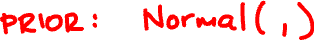 PRIOR: Normal( , )